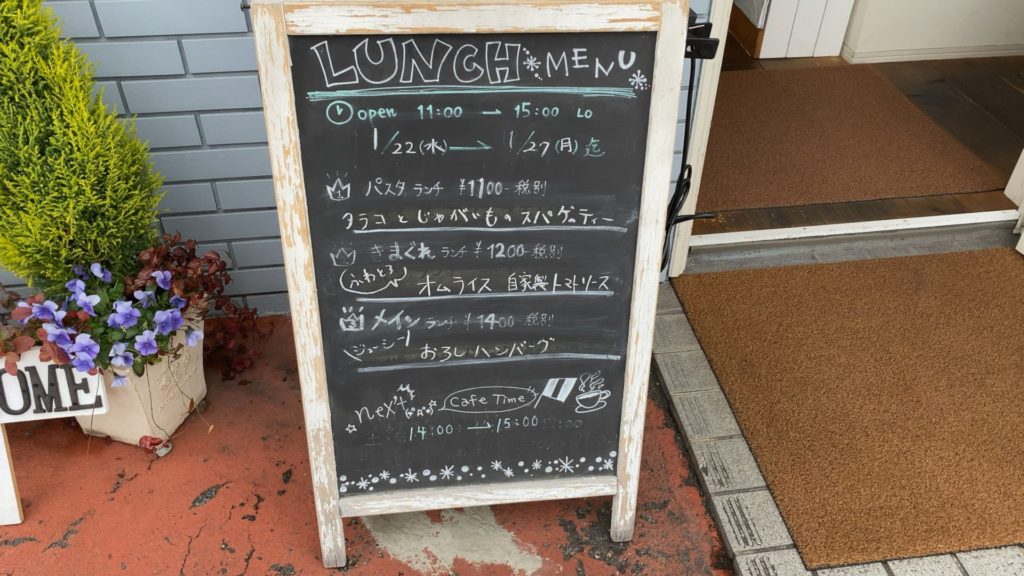 LUNCH MENU
open 11:00 → 15:00 LO
1/22(水) → 1/27(月)迄
パスタランチ ¥1100-税別
タラコとじゃがいものスパゲッティー
きまぐれランチ ¥1200-税別
ふわとろ オムライス 自家製トマトソース
メインランチ ¥1400-税別
ジューシー おろしハンバーグ
next Cafe Time
14:00 → 15:00
OME